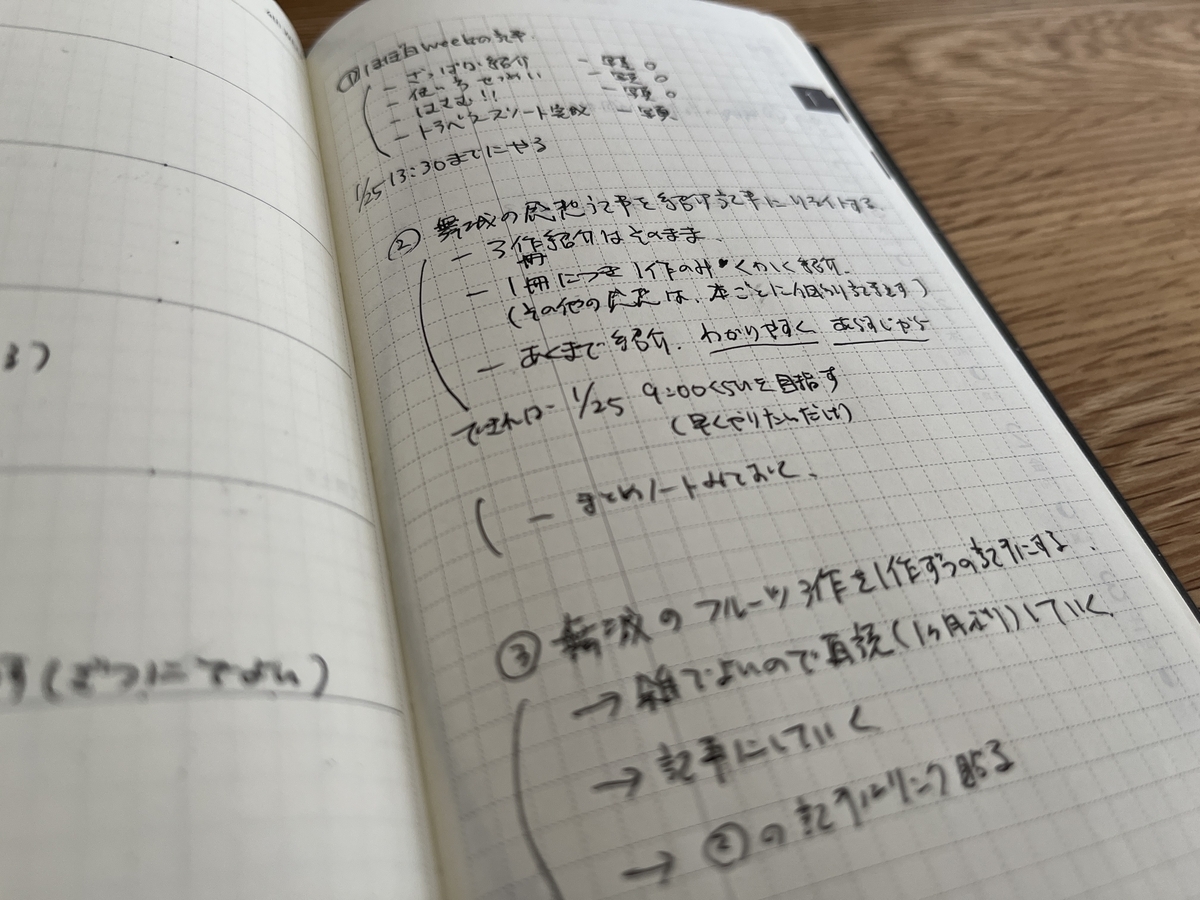 る)
(ざつにでよい)
① ほぼ日weekの記事.
- ざっぱな紹介 - 写真 ○
- 使い方せつめい - 写真 ○
- はさむ!! - 写真 ○
- トラベラーズノート完成 - 写真
1/25 13:30までにやる
② 舞城の感想記事を紹介記事にリライトする.
- 3作紹介はそのまま.
- 1冊につき1作のみくわしく紹介.
(その他の感想は、本ごとに個別記事とす)
- あくまで紹介. わかりやすく あらすじから
できれば 1/25 9:00くらいを目指す
(早くやりたいだけ)
- まとめノートみておく、
③ 舞城のフルーツ3作を1作ずつの記事にする.
→ 雑でよいので再読(1ヶ月ぶり)していく
→ 記事にしていく
→ ②の記事にリンク貼る
1